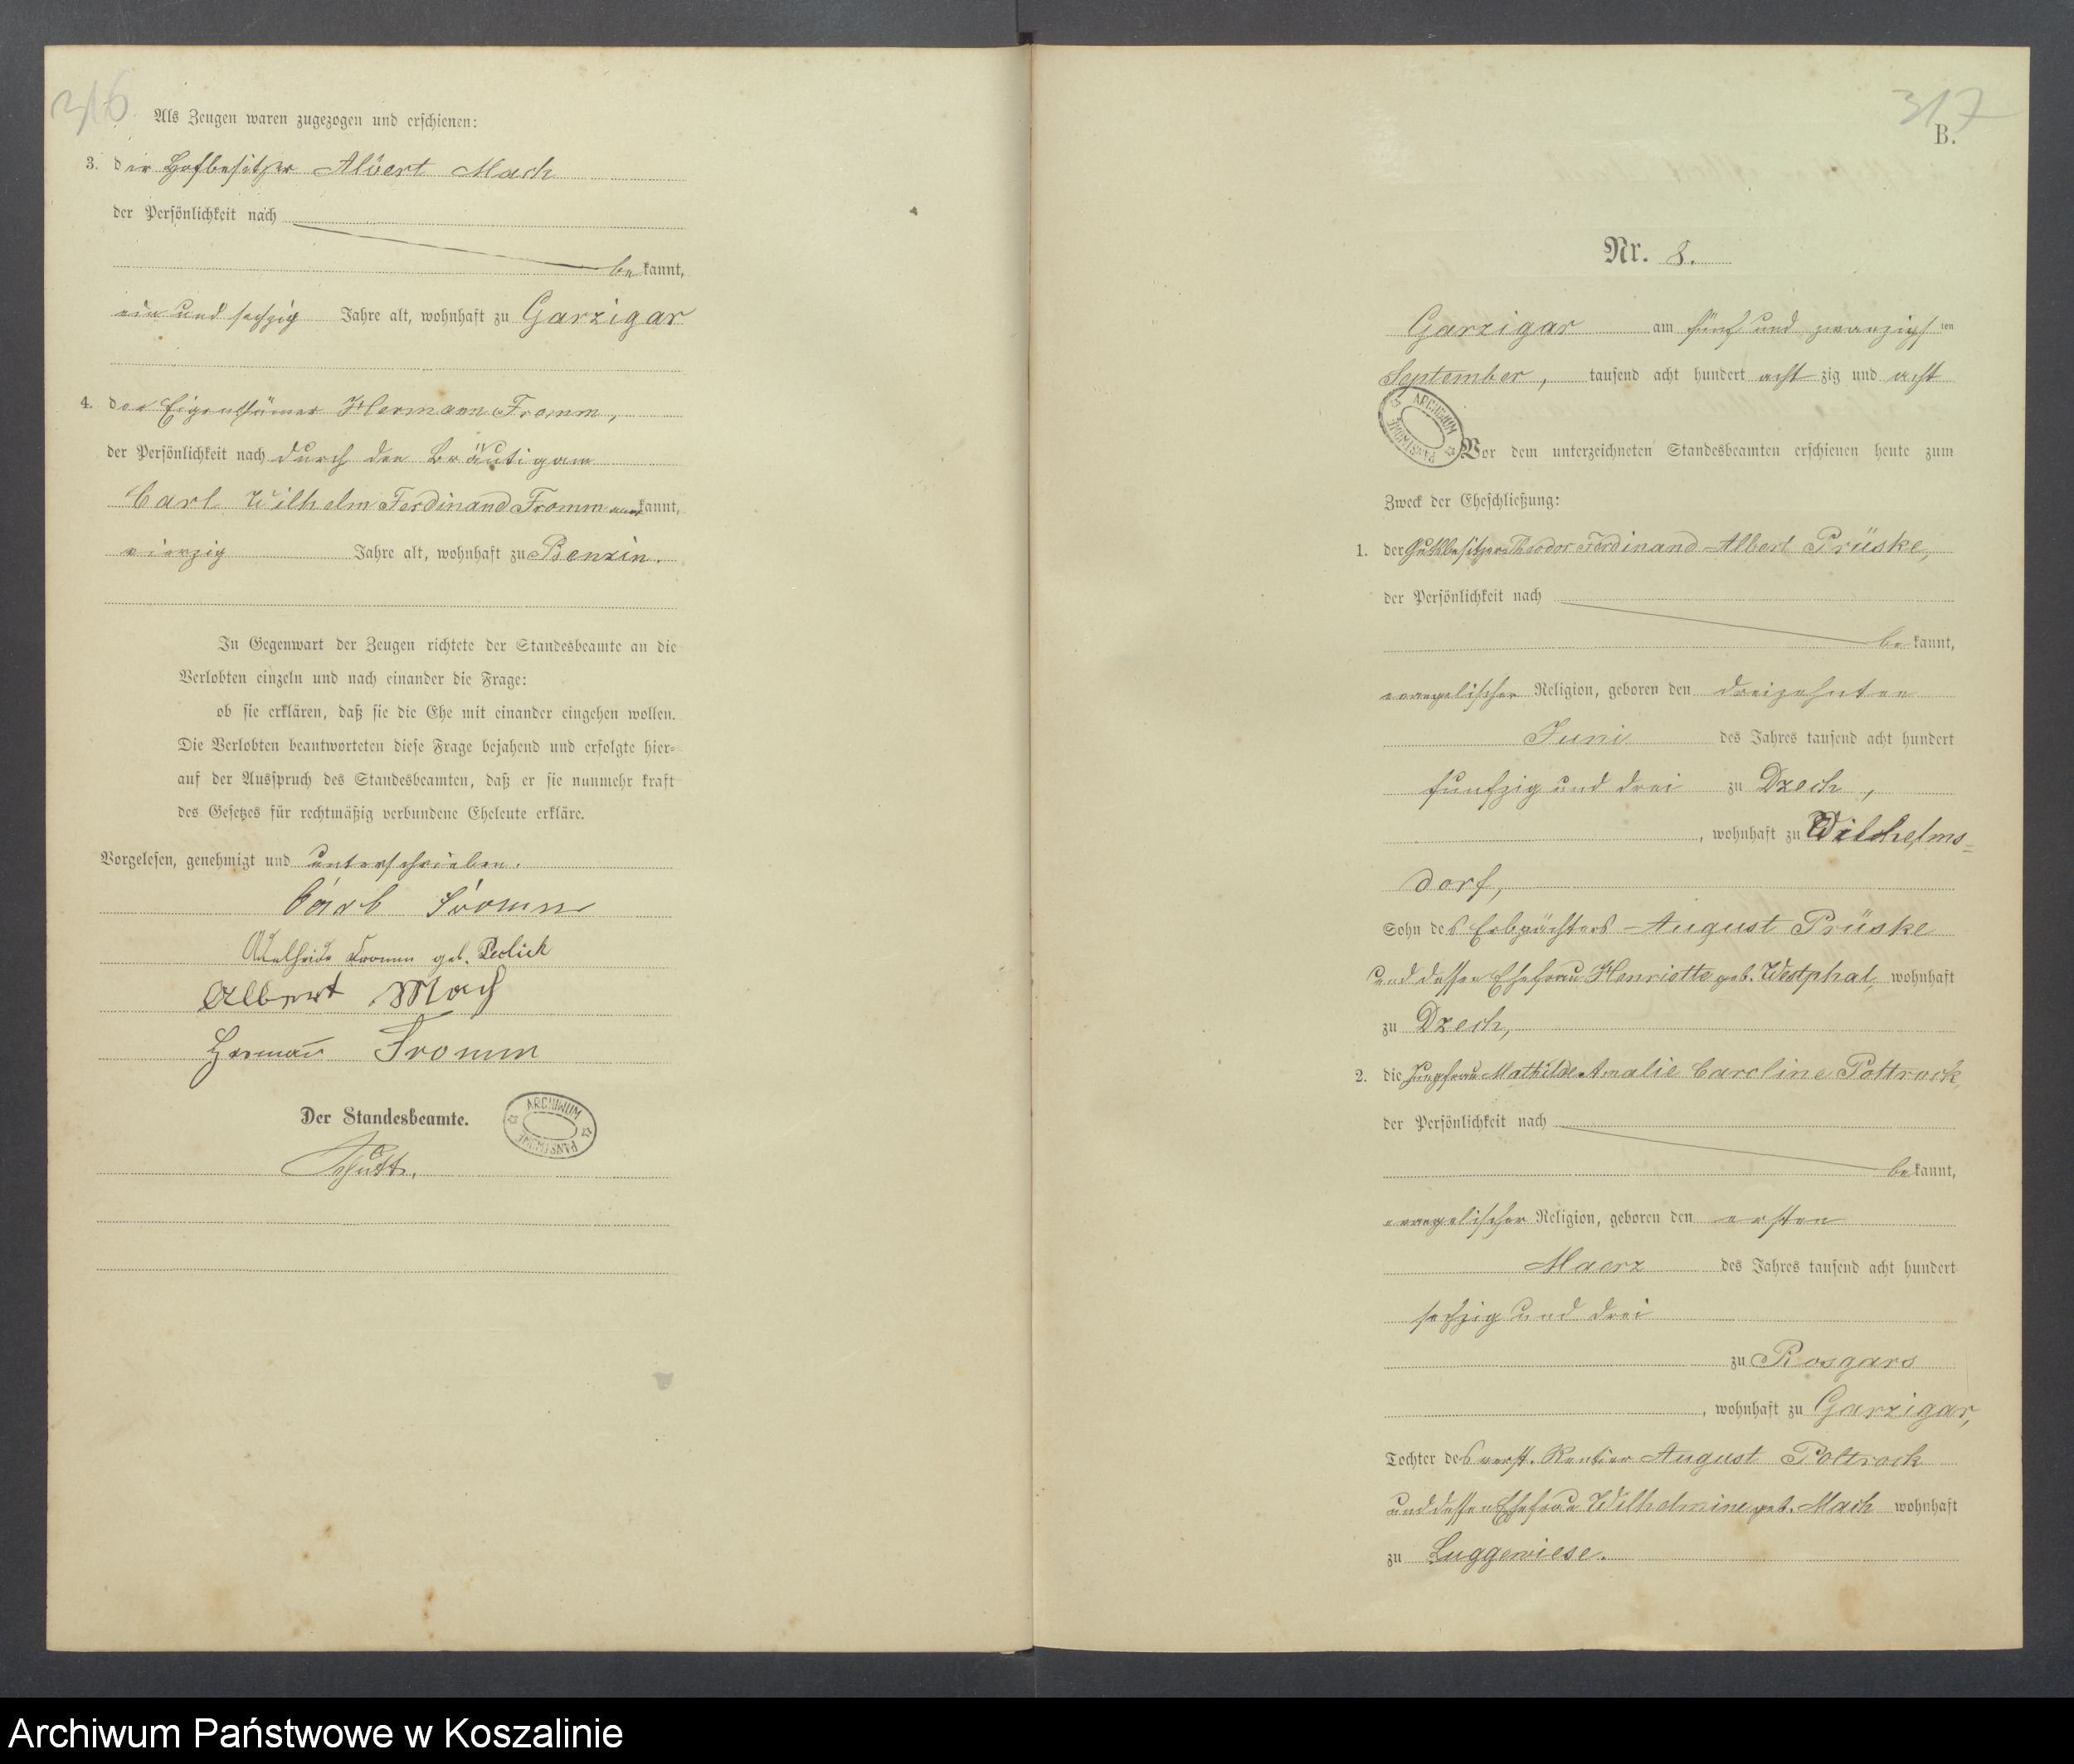 316
Als Zeugen waren zugezogen und erschienen:
3. der Hofbesitzer Albert Mach
der Persönlichkeit nach
bekannt,
ein und sechzig Jahre alt, wohnhaft zu Garzigar
4. der Eigenthümer Hermann Fromm,
der Persönlichkeit nach durch den Bräutigam
Carl Wilhelm Ferdinand Fromm anerkannt,
vierzig Jahre alt, wohnhaft zu Benzin.
In Gegenwart der Zeugen richtete der Standesbeamte an die
Verlobten einzeln und nach einander die Frage:
ob sie erklären, daß sie die Ehe mit einander eingehen wollen.
Die Verlobten beantworteten diese Frage bejahend und erfolgte hier-
auf der Ausspruch des Standesbeamten, daß er sie nunmehr kraft
des Gesetzes für rechtmäßig verbundene Eheleute erkläre.
Vorgelesen, genehmigt und unterschrieben.
Carl Fromm
Adelheide Fromm geb.
Albert Mach
Herman Fromm
Der Standesbeamte.
ARCHIWUM PAŃSTWOWE
317
B.
Nr. 8.
Garzigar am fünf und zwanzigsten
September, tausend acht hundert achtzig und acht
ARCHIWUM PAŃSTWOWE
Vor dem unterzeichneten Standesbeamten erschienen heute zum
Zweck der Eheschließung:
1. der Guthbesitzer Theodor Ferdinand Albert Prüske,
der Persönlichkeit nach
bekannt,
evangelischer Religion, geboren den dreizehnten
Juni des Jahres tausend acht hundert
funfzig und drei zu Dzech,
, wohnhaft zu Wilhelms-
dorf,
Sohn des Erbpächters August Prüske
und dessen Ehefrau Henriette geb. Westphal, wohnhaft
zu Dzech,
2. die Jungfrau Mathilde Amalie Caroline Poltrock,
der Persönlichkeit nach
bekannt,
evangelischer Religion, geboren den ersten
Maerz des Jahres tausend acht hundert
sechzig und drei
zu Rosgars
, wohnhaft zu Garzigar,
Tochter des verst. Rentier August Poltrock
und dessen Ehefrau Wilhelmine geb. Mach wohnhaft
zu Luggewiese.
Archiwum Państwowe w Koszalinie